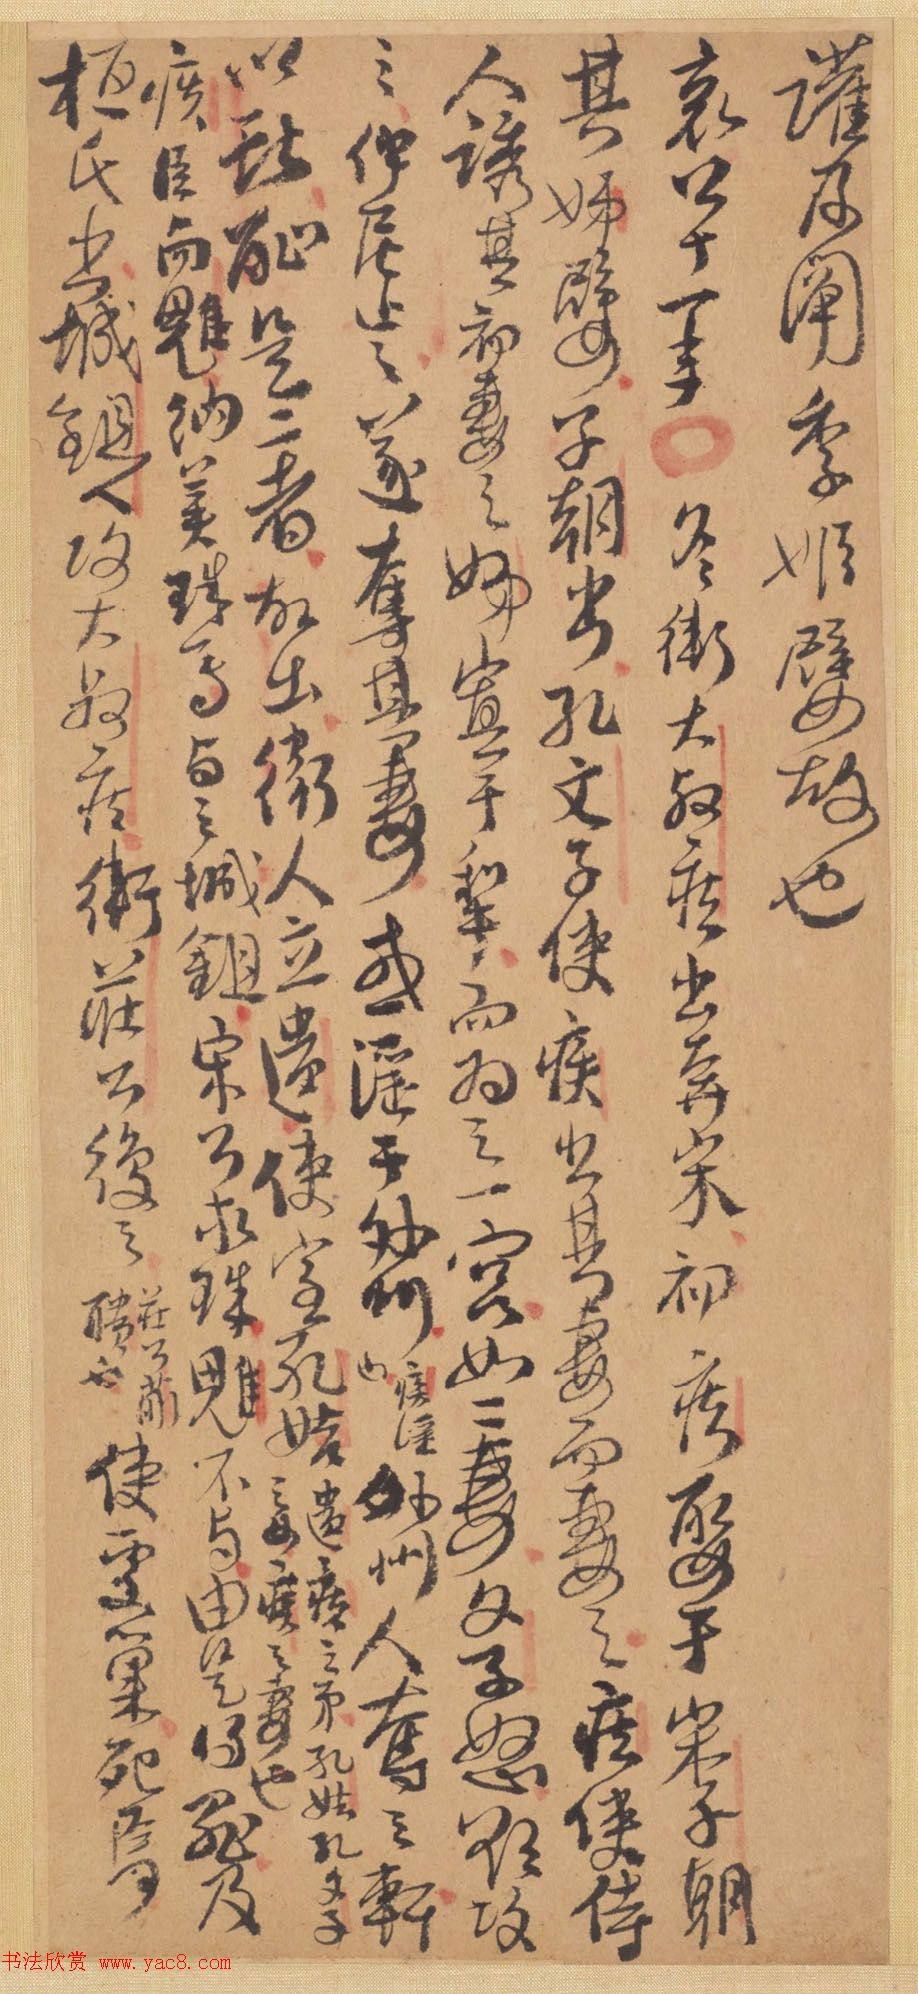 讙及闡季姬嬖故也
哀公十一年○冬衛大叔疾出奔宋初疾娶于宋子朝
其娣嬖子朝出孔文子使疾出其妻而妻之疾使侍
人誘其初妻之娣寘于犂而為之一宮如二妻文子怒欲攻
之仲尼止之遂奪其妻或淫于外州疾淫也外州人奪之軒
以献耻是二者故出衛人立遺使室孔姞遺疾之弟孔姞孔文子之女疾之妻也
疾臣向魋納美珠焉与之城鉏宋公求珠魋不与由是得罪及
桓氏出城鉏人攻大叔疾衛莊公復之莊公蒯聵也使處巢死焉
书法欣赏 www.yac8.com